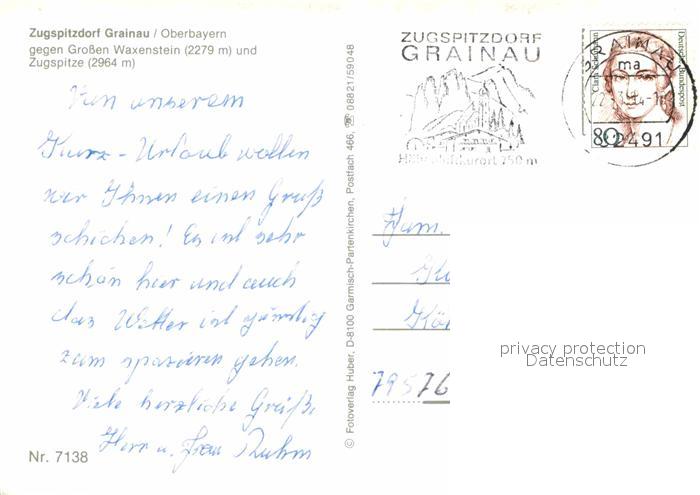 Zugspitzdorf Grainau / Oberbayern
gegen Großen Waxenstein (2279 m) und
Zugspitze (2964 m)
Von unserem
Kurz-Urlaub wollen
wir Ihnen einen Gruß
schicken! Es ist sehr
schön hier und auch
das Wetter ist günstig
zum spazieren gehen.
Viele herzliche Grüße,
Herr u. Frau
Nr. 7138
© Fotoverlag Huber, D-8100 Garmisch-Partenkirchen, Postfach 466, ☏ 08821/59048
ZUGSPITZDORF
GRAINAU
Höhenluftkurort 750 m
Deutsche Bundespost
80
GRAINAU
ma
82491
Fam.
Kö
79576
privacy protection
Datenschutz